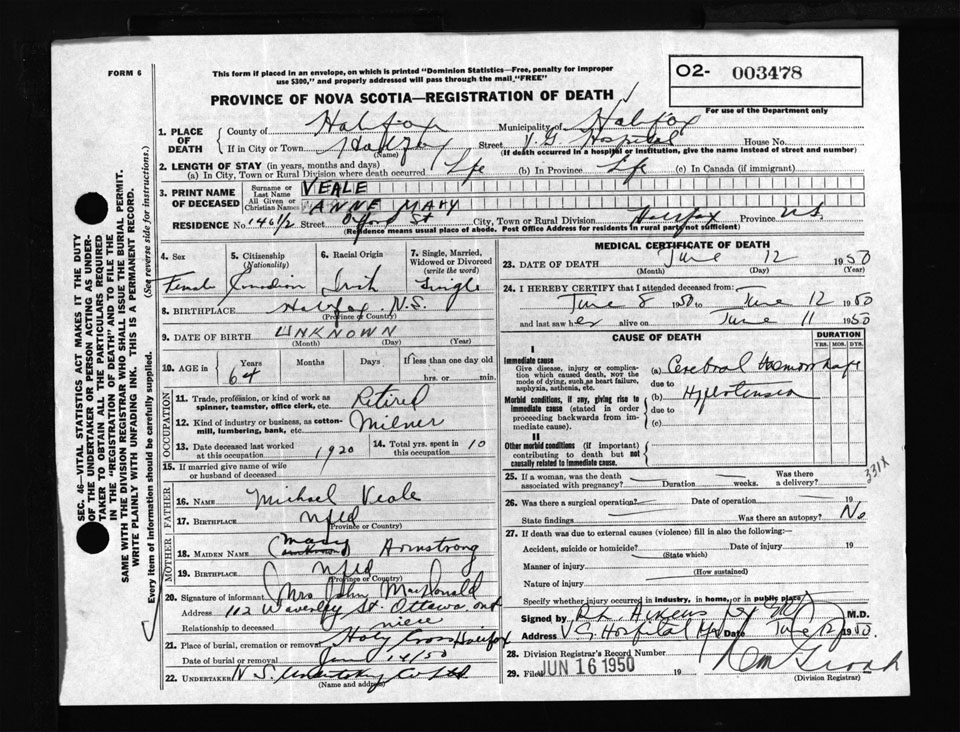 FORM 6
This form if placed in an envelope, on which is printed "Dominion Statistics—Free, penalty for improper
use $300," and properly addressed will pass through the mail "FREE"
O2- 003478
For use of the Department only
PROVINCE OF NOVA SCOTIA—REGISTRATION OF DEATH
1. PLACE OF DEATH
County of Halifax Municipality of Halifax
If in City or Town Halifax Street V G Hospital House No.
(Name) (If death occurred in a hospital or institution, give the name instead of street and number)
2. LENGTH OF STAY (in years, months and days)
(a) In City, Town or Rural Division where death occurred Life (b) In Province Life (c) In Canada (if immigrant)
3. PRINT NAME OF DECEASED
Surname or Last Name VEALE
All Given or Christian Names ANNE MARY
RESIDENCE No. 146 1/2 Street Oxford St City, Town or Rural Division Halifax Province N.S.
(Residence means usual place of abode. Post Office Address for residents in rural parts not sufficient)
4. Sex Female
5. Citizenship (Nationality) Canadian
6. Racial Origin Irish
7. Single, Married, Widowed or Divorced (write the word) Single
8. BIRTHPLACE Halifax, N.S.
(Province or Country)
9. DATE OF BIRTH UNKNOWN
(Month) (Day) (Year)
10. AGE in Years 64 Months Days If less than one day old hrs. or min.
OCCUPATION
11. Trade, profession, or kind of work as spinner, teamster, office clerk, etc. Retired
12. Kind of industry or business, as cotton-mill, lumbering, bank, etc. Milner
13. Date deceased last worked at this occupation 1920
14. Total yrs. spent in this occupation 10
15. If married give name of wife or husband of deceased
FATHER
16. NAME Michael Veale
17. BIRTHPLACE Nfld
(Province or Country)
MOTHER
18. MAIDEN NAME (Mary Armstrong
19. BIRTHPLACE Nfld
(Province or Country)
20. Signature of informant Mrs John MacDonald
Address 112 Waverley St. Ottawa, Ont
Relationship to deceased niece
21. Place of burial, cremation or removal Holy Cross Halifax
Date of burial or removal June 14/50
22. UNDERTAKER N S. Undertaking Co Ltd
(Name and address)
MEDICAL CERTIFICATE OF DEATH
23. DATE OF DEATH June 12 1950
(Month) (Day) (Year)
24. I HEREBY CERTIFY that I attended deceased from:
June 8 1950 to June 12 1950
and last saw her alive on June 11 1950
CAUSE OF DEATH
DURATION
YRS. MOS. DYS.
I
Immediate cause
Give disease, injury or complication which caused death, NOT the mode of dying, such as heart failure, asphyxia, asthenia, etc.
(a) Cerebral Haemorrhage
due to
Morbid conditions, if any, giving rise to immediate cause (stated in order proceeding backwards from immediate cause).
(b) Hypertension
due to
(c)
II
Other morbid conditions (if important) contributing to death but not causally related to immediate cause.
331X
25. If a woman, was the death associated with pregnancy? Duration weeks. Was there a delivery?
26. Was there a surgical operation? Date of operation 19
State findings Was there an autopsy? No
27. If death was due to external causes (violence) fill in also the following:
Accident, suicide or homicide? Date of injury 19
(State which)
Manner of injury
(How sustained)
Nature of injury
Specify whether injury occurred in industry, in home, or in public place
Signed by M.D.
Address V G Hospital Hfx Date June 12 1950.
28. Division Registrar's Record Number
29. Filed JUN 16 1950 19
(Division Registrar)
SEC. 46—VITAL STATISTICS ACT MAKES IT THE DUTY
OF THE UNDERTAKER OR PERSON ACTING AS UNDER-
TAKER TO OBTAIN ALL THE PARTICULARS REQUIRED
IN THE "REGISTRATION OF DEATH" AND TO FILE THE
SAME WITH THE DIVISION REGISTRAR WHO SHALL ISSUE THE BURIAL PERMIT.
WRITE PLAINLY WITH UNFADING INK. THIS IS A PERMANENT RECORD.
Every item of information should be carefully supplied. (See reverse side for instructions.)